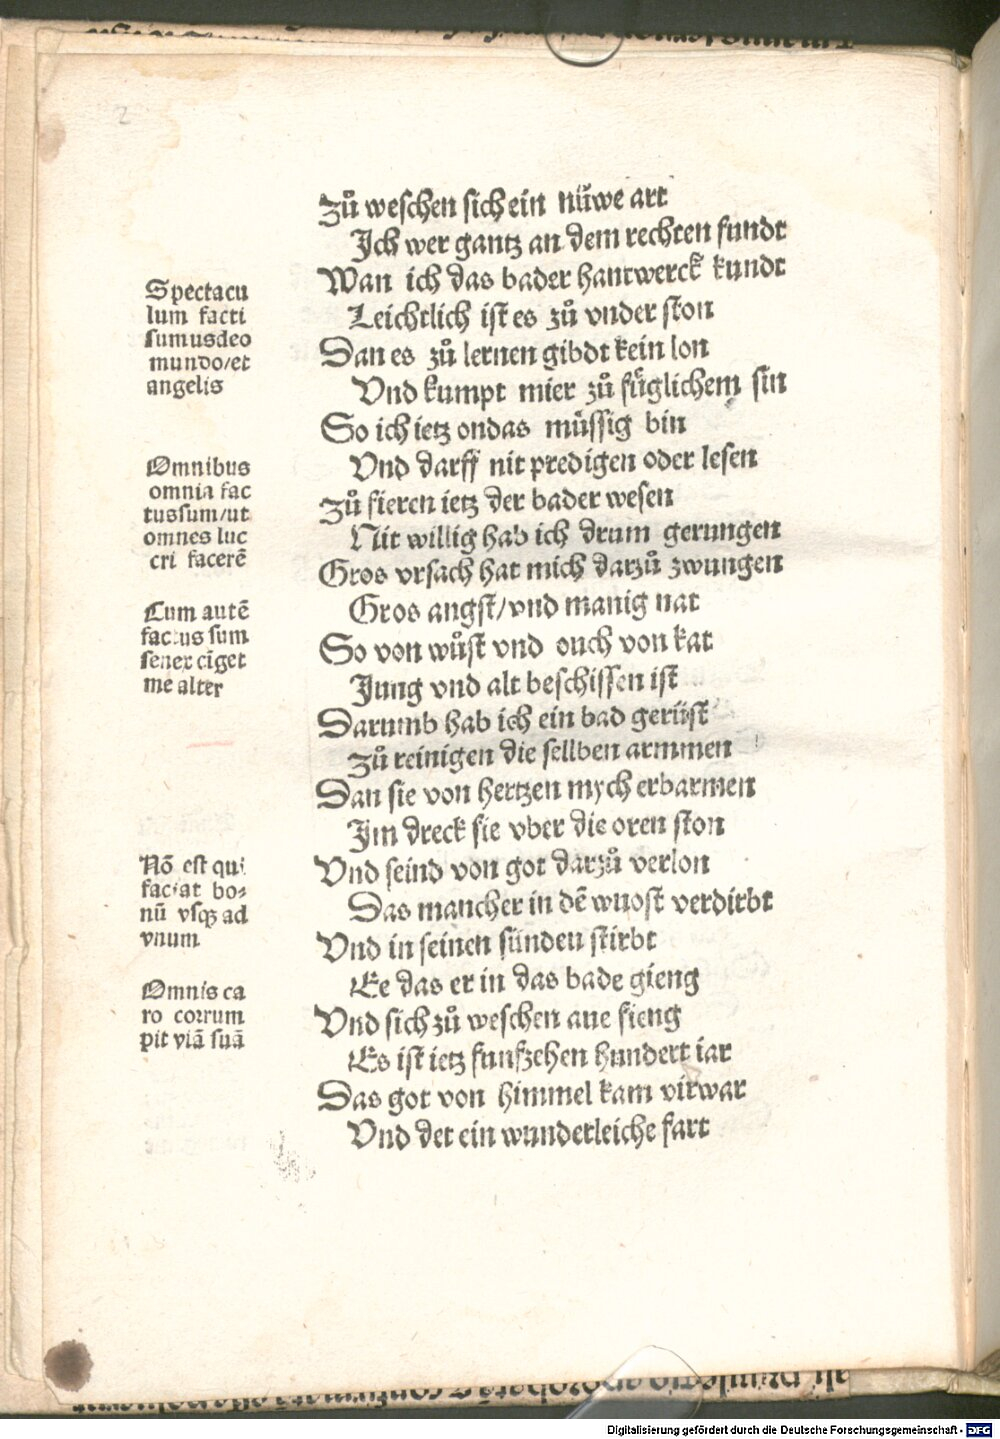 2
Zuͦ weschen sich ein nüwe art
Ich wer gantz an dem rechten fundt
Wan ich das bader hantwerck kundt
Leichtlich ist es zuͦ vnder ston
Dan es zuͦ lernen gibdt kein lon
Vnd kumpt mier zuͦ füglichem sin
So ich ietz ondas müssig bin
Vnd darff nit predigen oder lesen
Zuͦ fieren ietz der bader wesen
Nit willig hab ich drum gerungen
Gros vrsach hat mich darzuͦ zwungen
Gros angst/vnd manig nat
So von wuͦst vnd ouch von kat
Jung vnd alt beschissen ist
Darumb hab ich ein bad gerüst
Zuͦ reinigen die sellben armmen
Dan sie von hertzen mych erbarmen
Im dreck sie vber die oren ston
Vnd seind von got darzuͦ verlon
Das mancher in dē wuost verdirbt
Vnd in seinen sünden stirbt
Ee das er in das bade gieng
Vnd sich zuͦ weschen ane fieng
Es ist ietz funfzehen hundert iar
Das got von himmel kam virwar
Vnd det ein wunderleiche fart
Spectacu
lum facti
sumusdeo
mundo/et
angelis
Omnibus
omnia fac
tussum/ut
omnes luc
cri facerē
Cum autē
factus sum
senex cīget
me alter
Nō est qui
faciat bo⸗
nū vsqꝫ ad
vnum
Omnis ca
ro corrum
pit viā suā
Digitalisierung gefördert durch die Deutsche Forschungsgemeinschaft - DFG